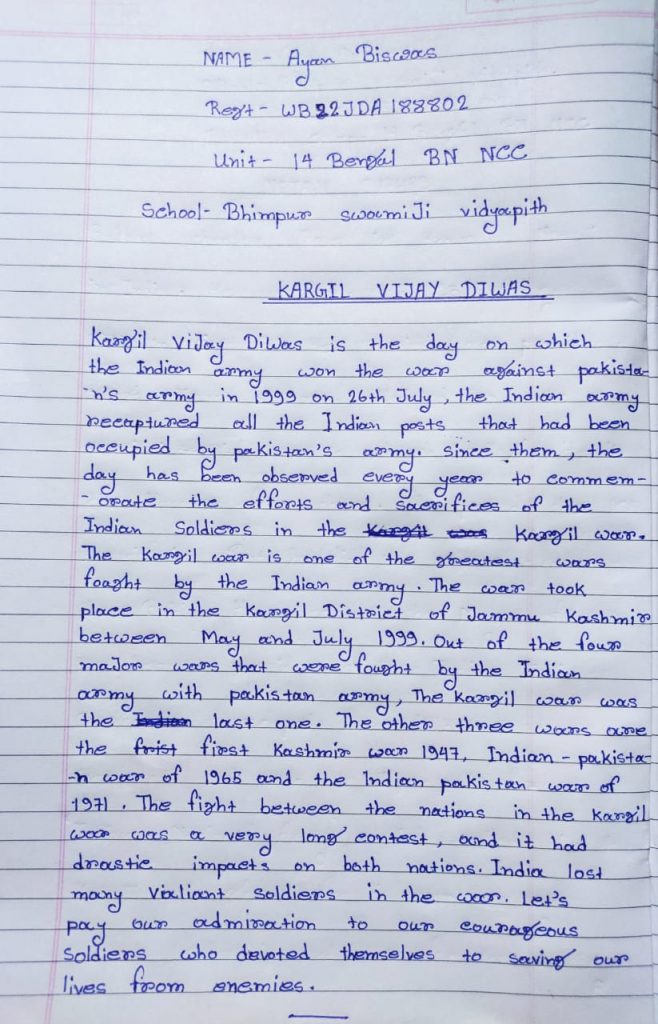 NAME - Ayan Biswas
Regt - WB22JDA188802
Unit - 14 Bengal BN NCC
School- Bhimpur swamiJi vidyapith
KARGIL VIJAY DIWAS
Kargil ViJay DiWas is the day on which
the Indian army won the war against pakista-
-n's army in 1999 on 26th July, the Indian army
recaptured all the Indian posts that had been
occupied by pakistan's army. since them, the
day has been observed every year to commem-
-orate the efforts and sacrifices of the
Indian Soldiers in the Kargil was Kargil war.
The Kargil war is one of the greatest wars
foaght by the Indian army. The war took
place in the Kargil District of Jammu Kashmir
between May and July 1999. Out of the four
maJor wars that were fought by the Indian
army with pakistan army, The Kargil war was
the Indian last one. The other three wars are
the frist first Kashmir war 1947, Indian - pakista-
-n war of 1965 and the Indian pakistan war of
1971. The fight between the nations in the Kargil
war was a very long contest, and it had
drastic impacts on both nations. India lost
many Valiant soldiers in the war. Let's
pay our admiration to our courageous
soldiers who devoted themselves to saving our
lives from enemies.